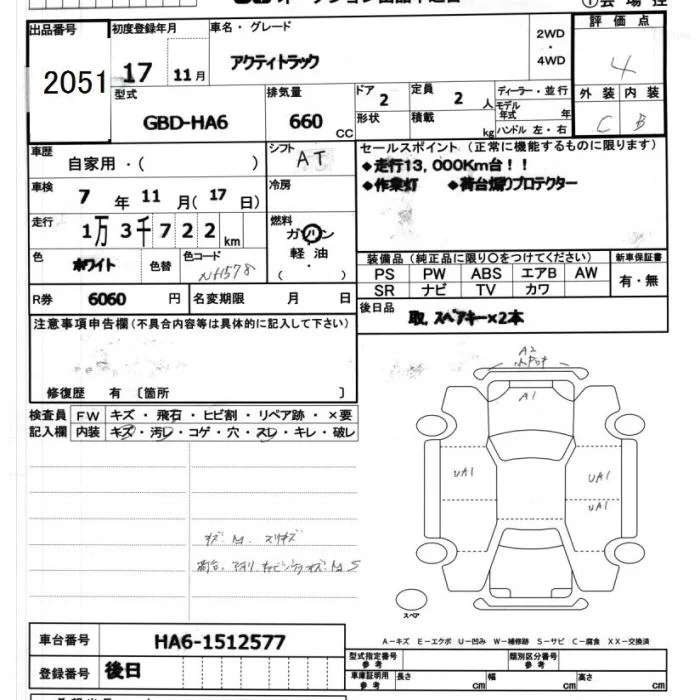 出品番号 初度登録年月 車名・グレード 2WD ・ 4WD 評価点
2051 17 11月 アクティトラック 4
型式 排気量 ドア 定員 ディーラー・並行 外装 内装
GBD-HA6 660 CC 2 2 人 モデル年式 年 C B
形状 積載 kg ハンドル 左・右
車歴 自家用・( ) シフト AT セールスポイント (正常に機能するものに限ります)
◆走行13,000Km台!!
◆作業灯 ◆荷台煽りプロテクター
車検 7年 11月(17日) 冷房
走行 1万3千722km 燃料 ガソリン 軽油 ( ・ )
色 ホワイト 色替 色コード NH578
装備品 (純正品に限り○をつけてください) 新車保証書
PS PW ABS エアB AW 有・無
SR ナビ TV カワ
R券 6060 円 名変期限 月 日
後日品 取,スペアキー×2本
注意事項申告欄(不具合内容等は具体的に記入して下さい)
修復歴 有 〔箇所 〕
検査員 FW キズ・飛石・ヒビ割・リペア跡・×要
記入欄 内装 キズ・汚レ・コゲ・穴・スレ・キレ・破レ
A2
A1
UA1 UA1
UA1
スペア
A-キズ E-エクボ U-凹み W-補修跡 S-サビ C-腐食 XX-交換済
車台番号 HA6-1512577
型式指定番号 参考 類別区分番号 参考
登録番号 後日
車庫証明用 参考 長さ cm 幅 cm 高さ cm